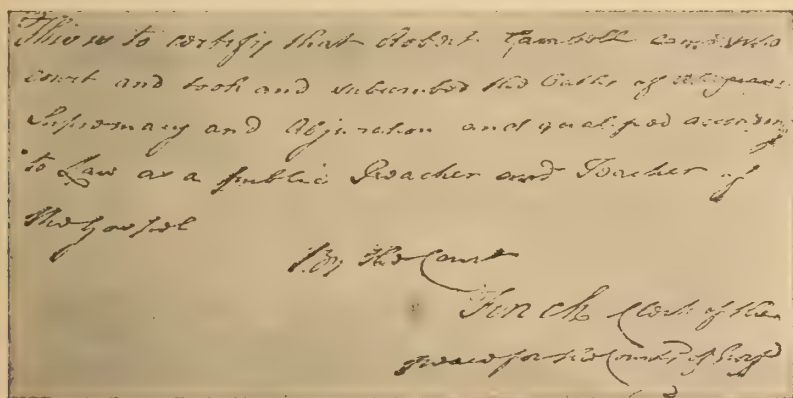 This is to certify that Robert Gamble came into
court and took and subscribed the Oaths of Allegiance
Supremacy and Abjuration and qualified according
to Law as a public Preacher and Teacher of
the Gospel
By the Court
Finch Clerk of the
peace for the County of